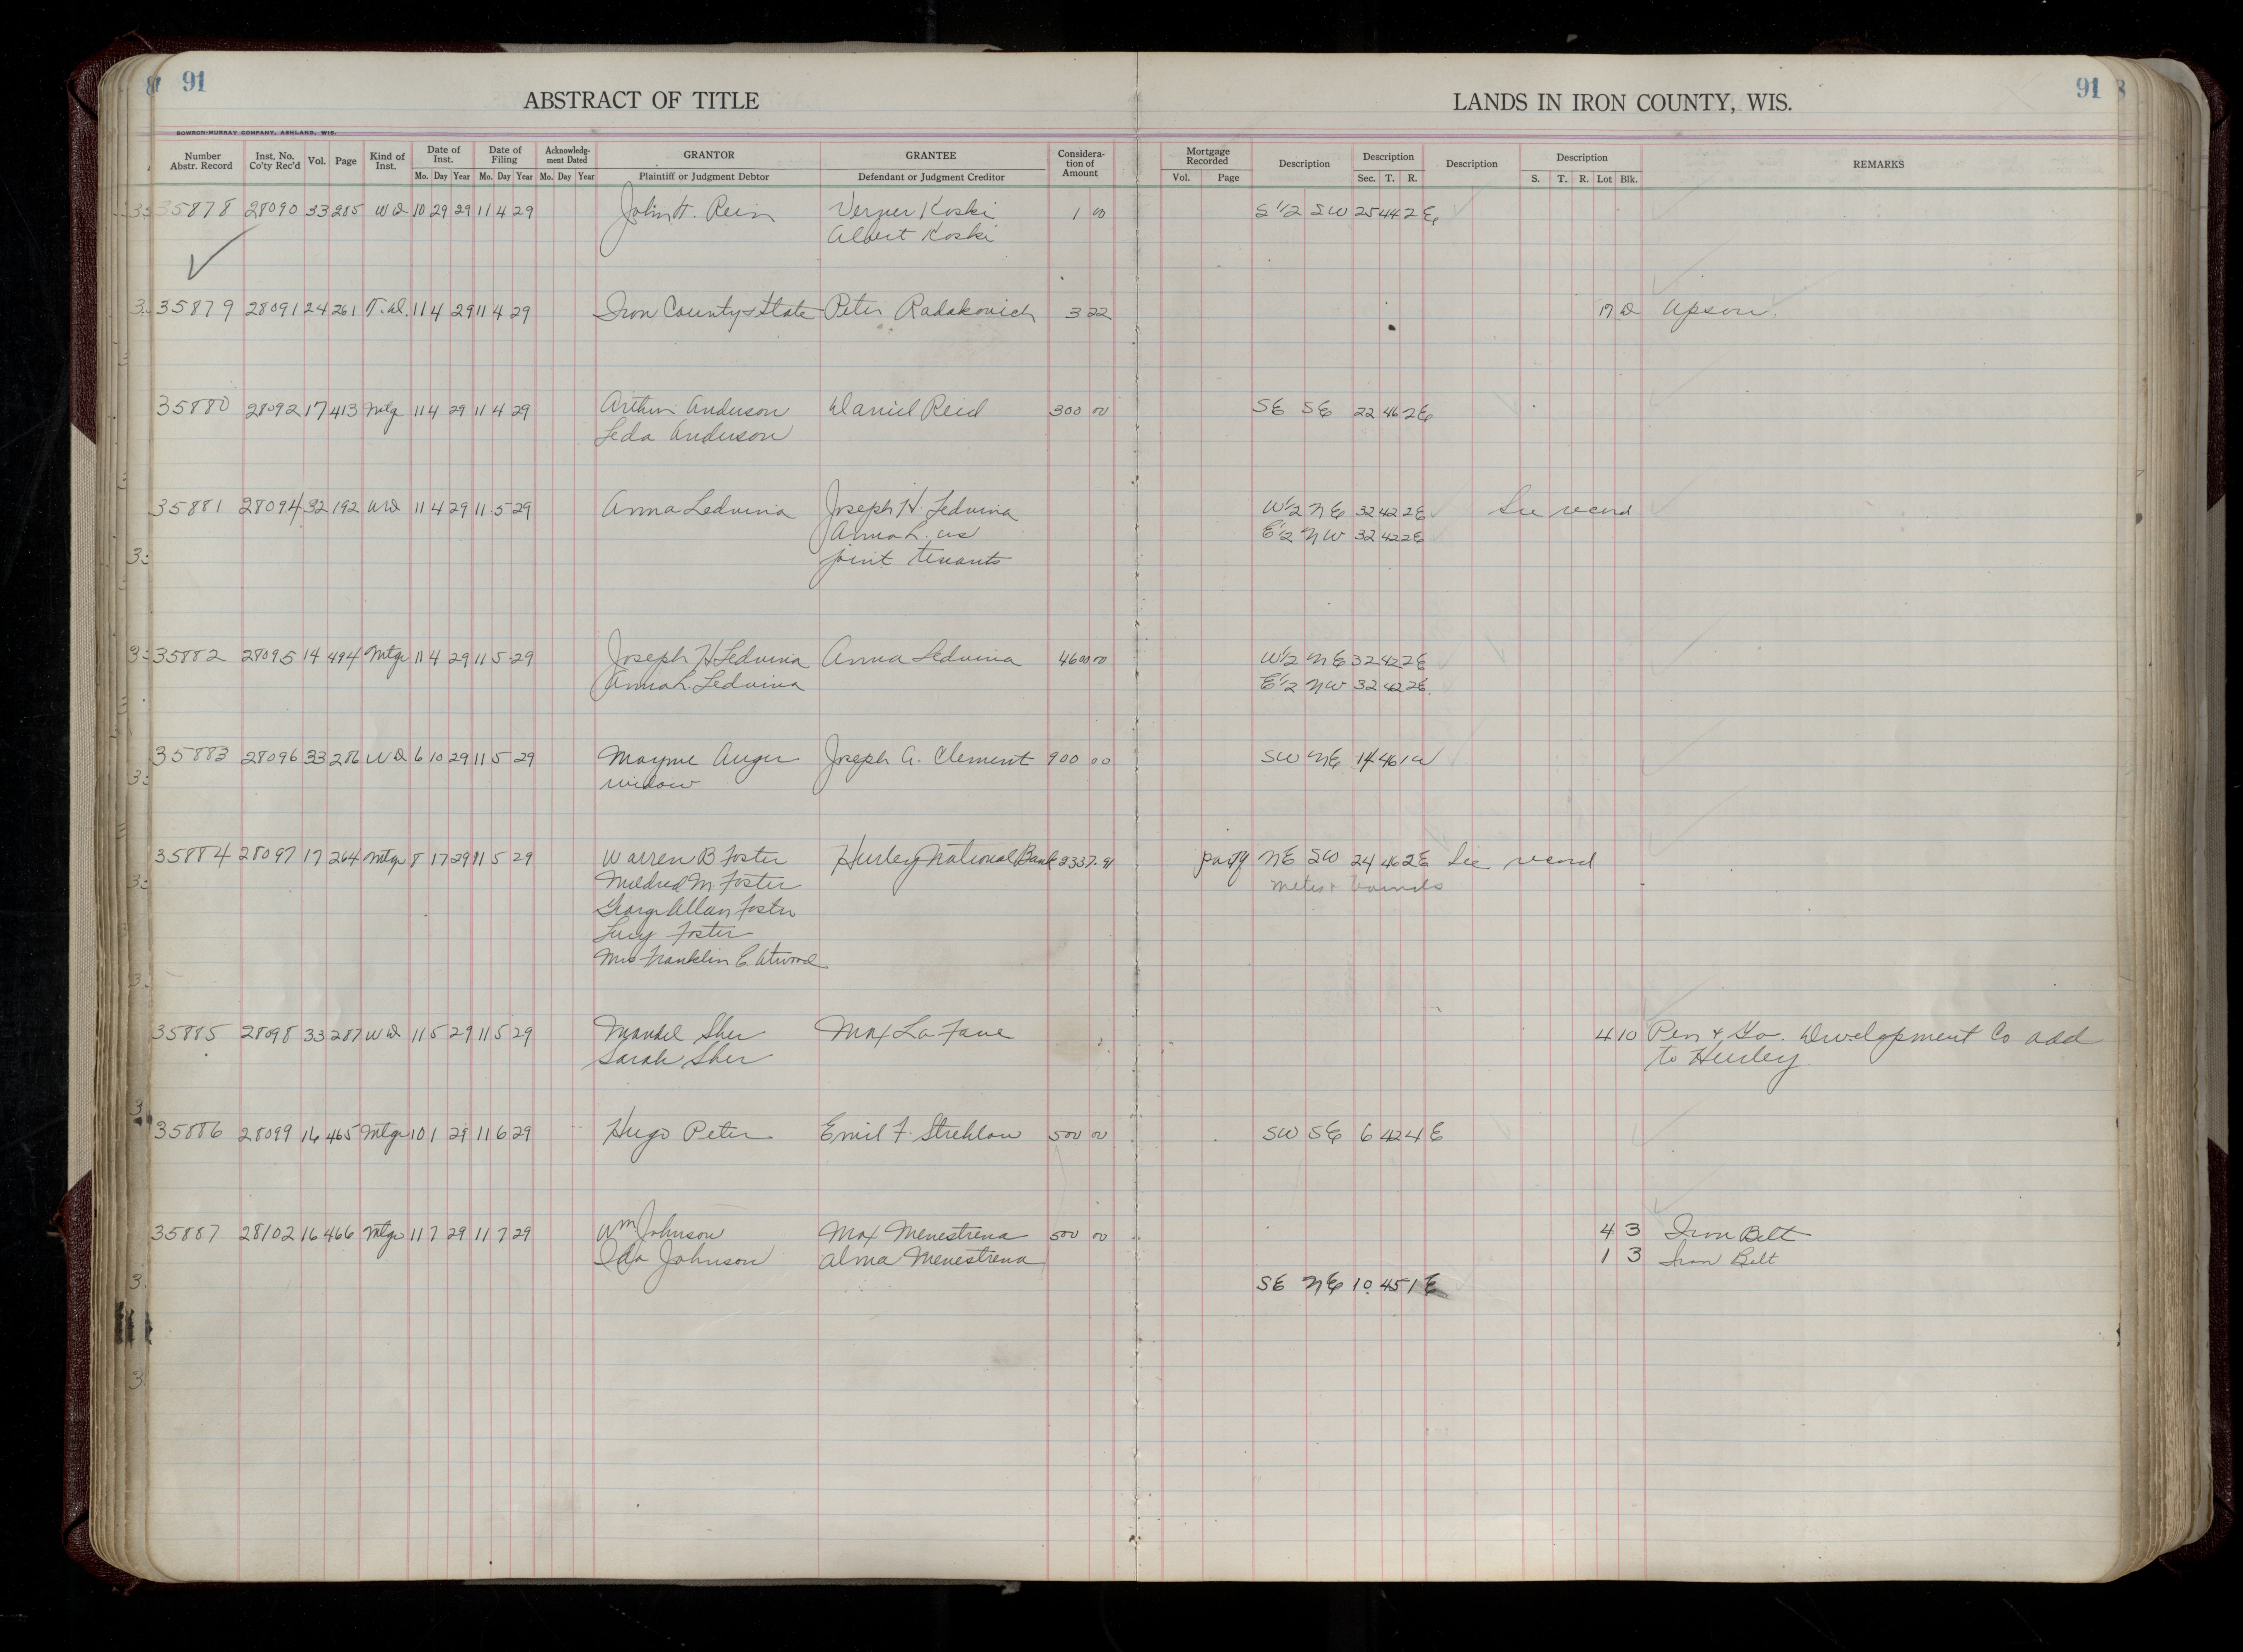 91
91
ABSTRACT OF TITLE
LANDS IN IRON COUNTY, WIS.
BOWRON-MURRAY COMPANY, ASHLAND, WIS.
Number Abstr. Record Inst. No. Co'ty Rec'd Vol. Page Kind of Inst. Date of Inst. Mo. Day Year Date of Filing Mo. Day Year Acknowledg-ment Dated Mo. Day Year GRANTOR Plaintiff or Judgment Debtor GRANTEE Defendant or Judgment Creditor Considera-tion of Amount Mortgage Recorded Vol. Page Description Description Sec. T. R. Description Description S. T. R. Lot Blk. REMARKS
35878 28090 33 285 WD 10 29 29 11 4 29 John H. Rein Verner Koski 1 00 S 1/2 SW 25 44 2 E
Albert Koski
35879 28091 24 261 T.D. 11 4 29 11 4 29 Iron County & State Peter Radakovich 3 22 17 D Upson.
35880 28092 17 413 Mtg 11 4 29 11 4 29 Arthur Anderson Daniel Reid 300 00 SE SE 22 46 2E
Leda Anderson
35881 28094 32 192 WD 11 4 29 11 5 29 Anna Ledvina Joseph H. Ledvina W1/2 NE 32 42 2E See record
Anna L. as E1/2 NW 32 42 2E
joint tenants
35882 28095 14 494 Mtge 11 4 29 11 5 29 Joseph H Ledvina Anna Ledvina 4600 00 W1/2 NE 32 42 2E
Anna L. Ledvina E1/2 NW 32 42 2E.
35883 28096 33 286 WD 6 10 29 11 5 29 Mayme Auger Joseph A. Clement 900 00 SW NE 14 46 1W
widow
35884 28097 17 264 Mtge 8 17 29 11 5 29 Warren B Foster Hurley National Bank 2337.91 part of NE SW 24 46 2E See record
Mildred M. Foster metes & bounds
George Allan Foster
Lucy Foster
Mrs Franklin C. Atwood
35885 28098 33 287 WD 11 5 29 11 5 29 Mandel Sher Max La Fave 4 10 Pen & Go. Development Co add
Sarah Sher to Hurley
35886 28099 16 465 Mtge 10 1 29 11 6 29 Hugo Peter Emil F. Strehlow 500 00 SW SE 6 42 4 E
35887 28102 16 466 Mtge 11 7 29 11 7 29 Wm Johnson Max Menestrena 500 00 4 3 Iron Belt
Ida Johnson Alma Menestrena 1 3 Iron Belt
SE NE 10 45 1 E